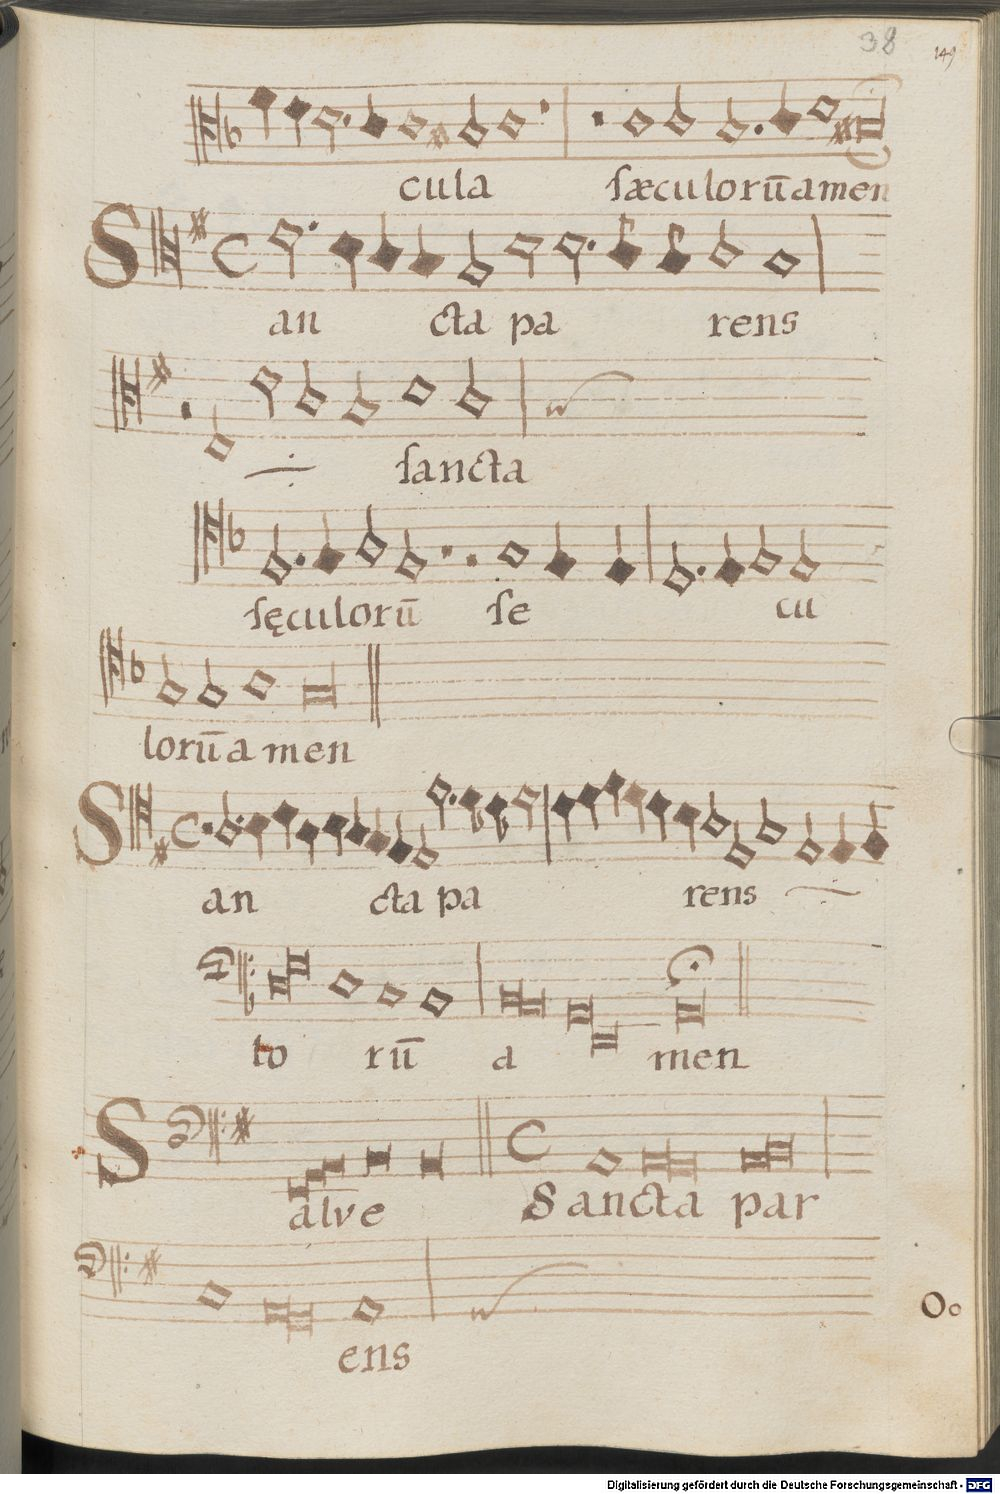 38 149
cula sæculorū amen
San cta pa rens
sancta
sęculorū se cu
lorū a men
San cta pa rens
to rū a men
Salve Sancta par
ens
Oo
Digitalisierung gefördert durch die Deutsche Forschungsgemeinschaft - DFG